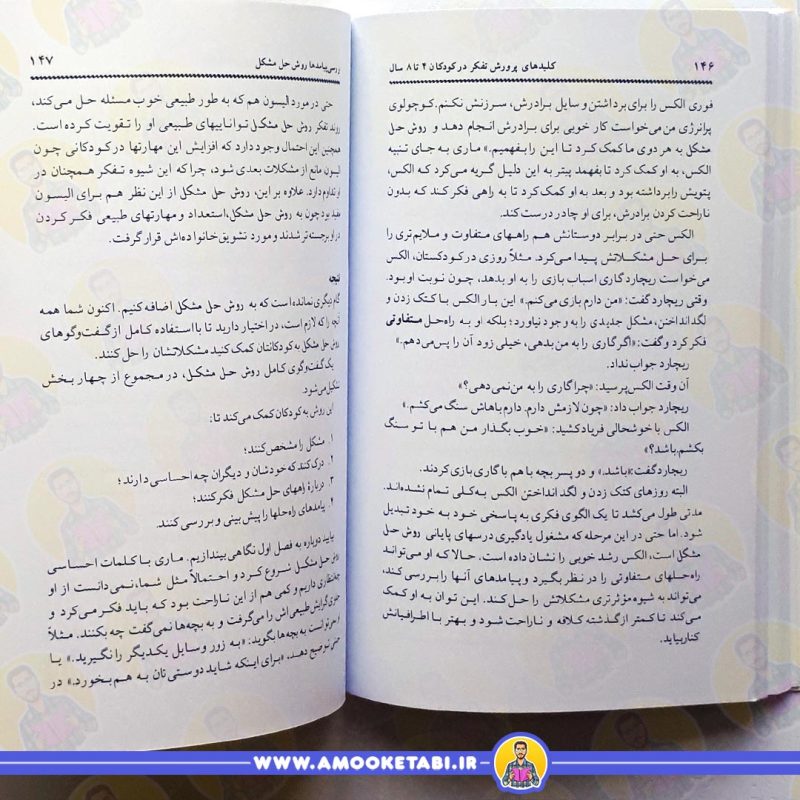 ۱۴۶ کلیدهای پرورش تفکر در کودکان ۴ تا ۸ سال
فوری الکس را برای برداشتن وسایل برادرش، سرزنش نکنم. کوچولوی
پرانرژی من می‌خواست کار خوبی برای برادرش انجام دهد و روش حل
مشکل به هر دوی ما کمک کرد تا این را بفهمیم.» ماری به جای تنبیه
الکس، به او کمک کرد تا بفهمد پیتر به این دلیل گریه می‌کرد که الکس،
پتویش را برداشته بود و بعد به او کمک کرد تا به راهی فکر کند که بدون
ناراحت کردن برادرش، برای او چادر درست کند.
الکس حتی در برابر دوستانش هم راههای متفاوت و ملایم‌تری را
برای حل مشکلاتش پیدا می‌کرد. مثلاً روزی در کودکستان، الکس
می‌خواست ریچارد گاری اسباب بازی را به او بدهد، چون نوبت او بود.
وقتی ریچارد گفت: «من دارم بازی می‌کنم.» این بار الکس با کتک زدن و
لگد انداختن، مشکل جدیدی را به وجود نیاورد؛ بلکه او به راه‌حل متفاوتی
فکر کرد و گفت: «اگر گاری را به من بدهی، خیلی زود آن را پس می‌دهم.»
ریچارد جواب نداد.
آن وقت الکس پرسید: «چرا گاری را به من نمی‌دهی؟»
ریچارد جواب داد: «چون لازمش دارم. دارم باهاش سنگ می‌کشم.»
الکس با خوشحالی فریاد کشید: «خوب بگذار من هم با تو سنگ
بکشم، باشد؟»
ریچارد گفت: «باشد.» و دو پسر بچه با هم با گاری بازی کردند.
البته روزهای کتک زدن و لگد انداختن الکس به‌کلی تمام نشده‌اند.
مدتی طول می‌کشد تا یک الگوی فکری به پاسخی خود به خود تبدیل
شود. اما حتی در این مرحله که مشغول یادگیری درسهای پایانی روش حل
مشکل است، الکس رشد خوبی را نشان داده است. حالا که او می‌تواند
راه‌حلهای متفاوتی را در نظر بگیرد و پیامدهای آنها را بررسی کند،
می‌تواند به شیوه مؤثرتری مشکلاتش را حل کند. این توان به او کمک
می‌کند تا کمتر از گذشته کلافه و ناراحت شود و بهتر با اطرافیانش
کنار بیاید.
پیامدها روش حل مشکل ۱۴۷
حتی در مورد الیسون هم که به طور طبیعی خوب مسئله حل می‌کند،
روند تفکر روش حل مشکل تواناییهای طبیعی او را تقویت کرده است.
همچنین این احتمال وجود دارد که افزایش این مهارتها در کودکانی چون
الیسون مانع از مشکلات بعدی شود، چرا که این شیوه تفکر همچنان در
او تداوم دارد. علاوه بر این، روش حل مشکل از این نظر هم برای الیسون
مفید بود چون به روش حل مشکل، استعداد و مهارتهای طبیعی فکر کردن
در او برجسته‌تر شدند و مورد تشویق خانواده‌اش قرار گرفت.
نتیجه
گام دیگری نمانده است که به روش حل مشکل اضافه کنیم. اکنون شما همه
آنچه را که لازم است، در اختیار دارید تا با استفاده کامل از گفت‌وگوهای
روش حل مشکل به کودکانتان کمک کنید مشکلاتشان را حل کنند.
یک گفت‌وگوی کامل روش حل مشکل، در مجموع از چهار بخش
تشکیل می‌شود.
این روش به کودکان کمک می‌کند تا:
۱. مشکل را مشخص کنند؛
۲. درک کنند که خودشان و دیگران چه احساسی دارند؛
۳. دربارهٔ راههای حل مشکل فکر کنند؛
۴. پیامدهای راه‌حلها را پیش‌بینی و بررسی کنند.
بیایید دوباره به فصل اول نگاهی بیندازیم. ماری با کلمات احساسی
روش حل مشکل شروع کرد و احتمالاً مثل شما، نمی‌دانست از او
چه انتظاری داریم و کمی هم از این ناراحت بود که باید فکر می‌کرد و
جلوی گرایش طبیعی‌اش را می‌گرفت و به بچه‌ها نمی‌گفت چه بکنند. مثلاً
او نمی‌توانست به بچه‌ها بگوید: «به زور وسایل یکدیگر را نگیرید.» یا
حتی توضیح دهد. «برای اینکه شاید دوستی‌تان به هم بخورد.» در
WWW.AMOOKETABI.IR